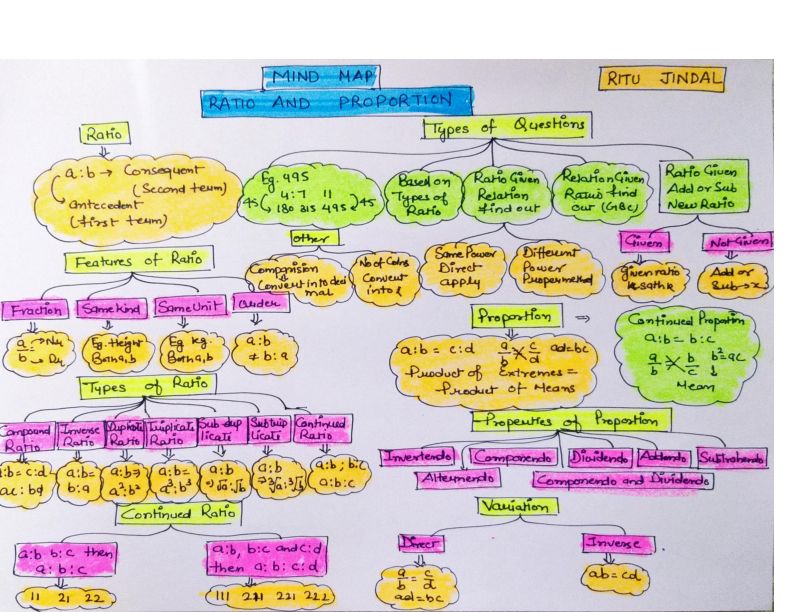 MIND MAP
RATIO AND PROPORTION
RITU JINDAL
Ratio
a:b → Consequent
(Second term)
antecedent
(first term)
Types of Questions
Eg. 495
4:7 11
45 ( 180 315 495 ) 45
Based on
Types of
Ratio
Ratio Given
Relation
find out
Relation Given
Ratio find
out (GBC)
Ratio Given
Add or Sub
New Ratio
Other
Comparision
Convert into deci
mal
No of Coins
Convert
into
Same Power
Direct
apply
Different
Power
Given
Given ratio
k sath k
Not Given
Add or
Sub → x
Features of Ratio
Fraction
a → Nr
b → Dr
Same Kind
Eg. Height
Both a, b
Same Unit
Eg kg.
Both a, b
Order
a:b
≠ b:a
Proportion ⇒
a:b = c:d a/b × c/d ad=bc
Product of Extremes =
Product of Means
Continued Proportion
a:b = b:c
a/b × b/c b²=ac
Mean
Types of Ratio
Compound
Ratio
a:b = c:d
ac:bd
Inverse
Ratio
a:b=
b:a
Duplicate
Ratio
a:b→
a²:b²
Triplicate
Ratio
a:b=
a³:b³
Sub dup
licate
a:b
√a:√b
Sub trip
licate
a:b
∛a:∛b
Continued
Ratio
a:b ; b:c
a:b:c
Properties of Proportion
Invertendo
Componendo
Dividendo
Addendo
Subtrahendo
Alternendo
Componendo and Dividendo
Continued Ratio
a:b b:c then
a:b:c
11 21 22
a:b, b:c and c:d
then a:b:c:d
111 211 221 222
Variation
Direct
a/b = c/d
ad=bc
Inverse
ab=cd